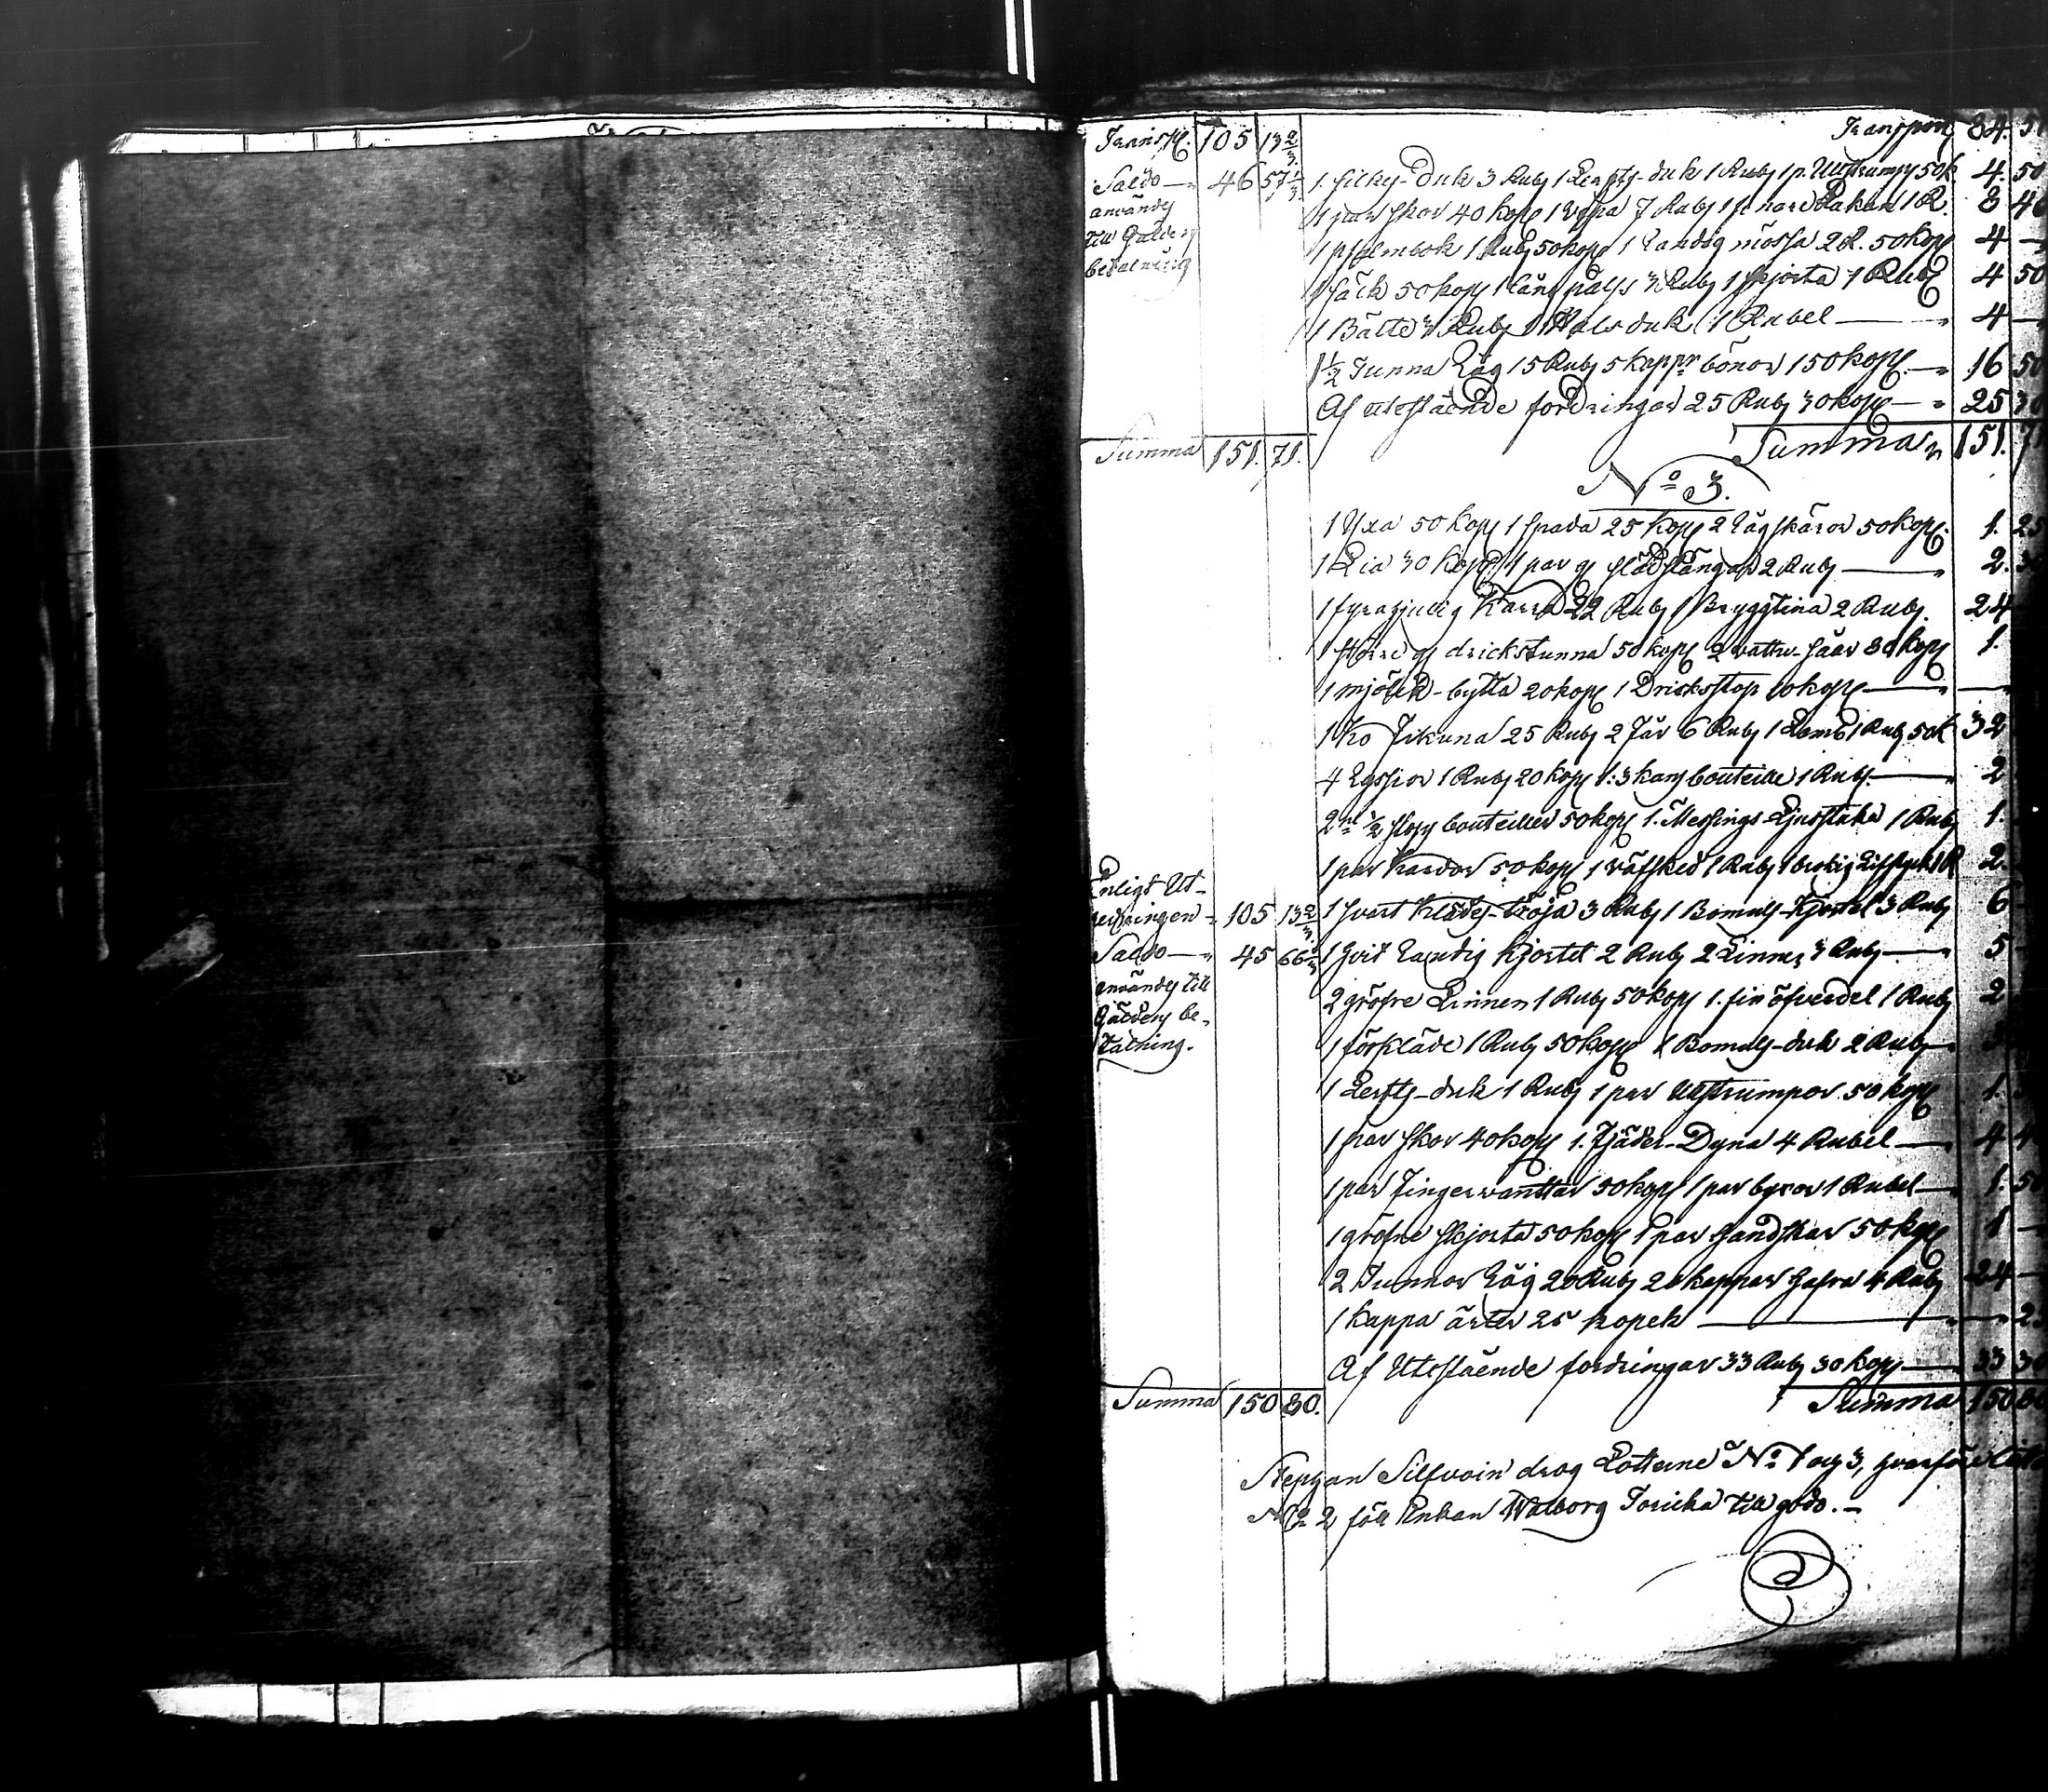 Transp. 105 13 2/3. Transport 84. 5
Saldo — 46 57 1/3. 1. silkes-duk 3 Rub 1 Lerfts-duk 1 Rub 1 p. Ullstrumpr 50 k. 4. 50
användes 1 par skor 40 kop 1 1 R. 8 40
till Gäldens 1 psalmbok 1 Rub 50 kop 1 Randig mössa 2 R. 50 kop 4 —
betalning 1 säck 50 kop 1 Rub 1 skjorta 1 Rub 4 50
1 Bälte 3 Rub 1 Halsduk 1 Rubel — 4 —
1 1/2 Tunna Råg 15 Rub 5 kappr bönor 150 kop — 16 50
Af utestående fordringar 25 Rub 30 kop — 25 30
Summa 151. 71. Summa 151. 71
No 3.
1 Yxa 50 kop 1 spada 25 kop 2 Rågskäror 50 kop. 1. 25
1 Lia 30 kop 1 par g slädstänger 2 Rub — 2. 30
1 fyragjulig Karra 22 Rub 1 Bryggtina 2 Rub. 24
1 större g drickstunna 50 kop 2 vattu-såar 80 kop 1.
1 mjölk-bytta 20 kop 1 Dricksstop 10 kop — —
1 Ko 25 Rub 2 Får 6 Rub 1 Lamb 1 Rub 50 k 32
4 1 Rub 20 kop 1: 3 kans bouteille 1 Rub — 2
2ne 1/2 stops bouteiller 50 kop 1. Messings Ljusstaka 1 Rub 1.
1 par Kardor 50 kop 1 väfsked 1 Rub 1 brokig Lifstycke 1 R 2.
Enligt Ut-
räkningen — 105 13 2/3. 1 svart Klädes-tröja 3 Rub 1 Bomulls-Kjortel 3 Rub 6
Saldo — 45 66 1/3 1 hvit Randig Kjortel 2 Rub 2 Linnen 3 Rub — 5
användes till 2 gröfre Linnen 1 Rub 50 kop 1. fin öfverdel 1 Rub 2
Gäldens be-
talning. 1 förkläde 1 Rub 50 kop 1 Bomulls-duk 2 Rub — 3
1 Lerfts-duk 1 Rub 1 par Ullstrumpor 50 kop 1.
1 par skor 40 kop 1. Fjäder-Dyna 4 Rubel — 4 4
1 par Fingervanttar 50 kop 1 par byxor 1 Rubel — 1. 50
1 gröfre skjorta 50 kop 1 par handskar 50 kop 1 —
2 Tunnor Råg 20 Rub 20 kappar hafra 4 Rub 24 —
1 kappa ärter 25 kopek — — 2
Af Utestående fordringar 33 Rub 30 kop — 33 30
Summa 150 80. Summa 150 80
Stephan Silfvoin drog Lotterne No 1 och 3, hvarföre
No 2 föll Enkan Walborg Toricka till godo. —